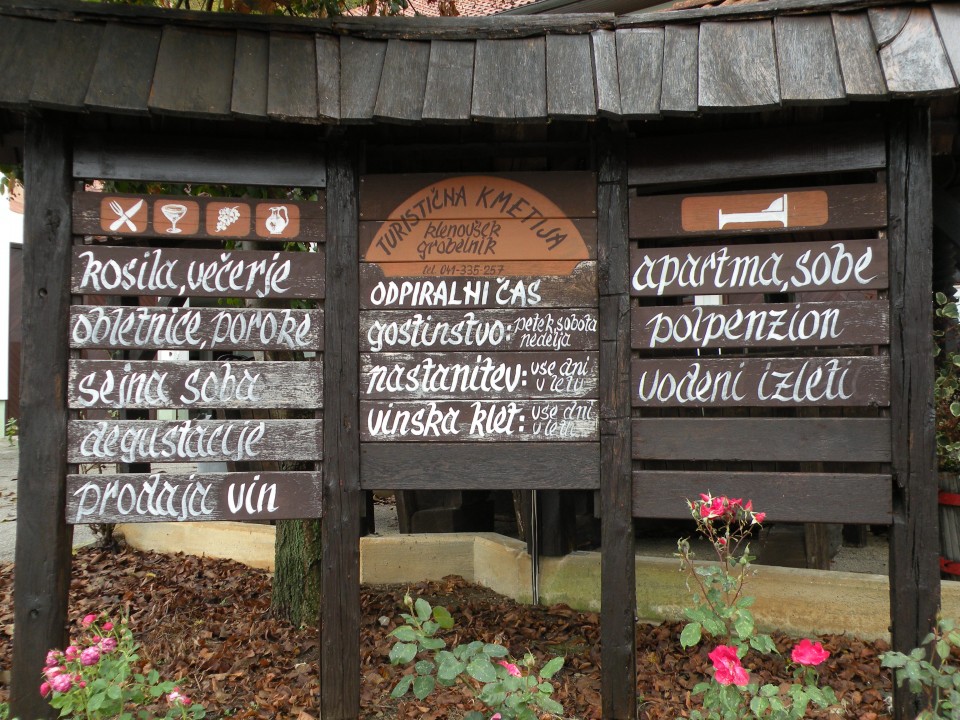 kosila, večerje
obletnice, poroke
sejna soba
degustacije
prodaja vin
TURISTIČNA KMETIJA
klenovšek
grobelnik
tel. 041-335-257
ODPIRALNI ČAS
gostinstvo: petek, sobota
nedelja
nastanitev: vse dni
v letu
vinska klet: vse dni
v letu
apartma, sobe
polpenzion
vodeni izleti